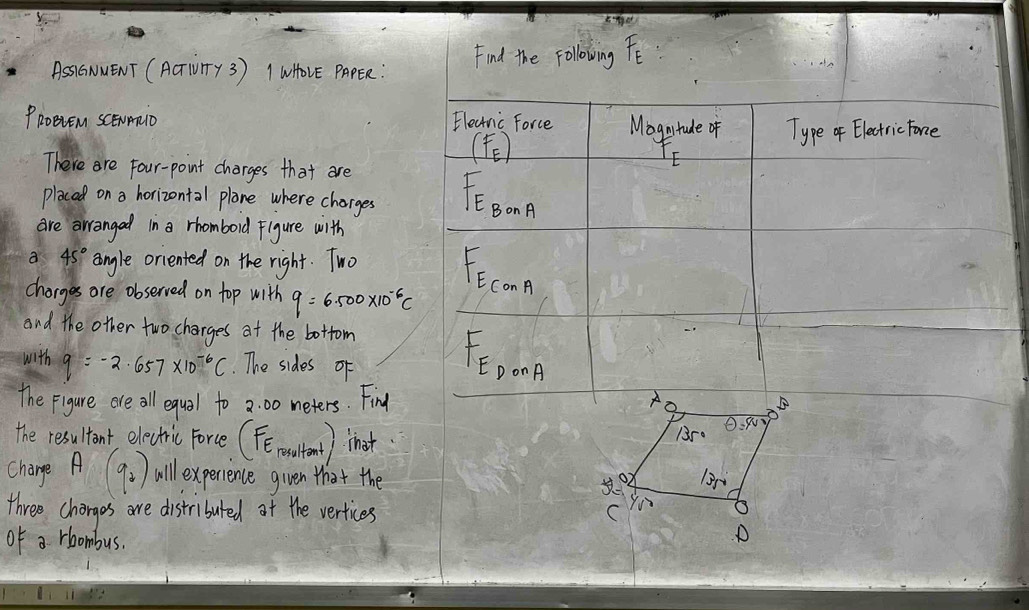 ASSIGNMENT (ACTIVITY 3) 1 WHOLE PAPER:
PROBLEM SCENARIO
There are four-point charges that are
placed on a horizontal plane where charges
are arranged in a rhomboid figure with
a 45° angle oriented on the right. Two
charges are observed on top with q = 6.500 x10⁻⁶C
and the other two charges at the bottom
with q = -2.657 x10⁻⁶C. The sides of
the figure are all equal to 2.00 meters. Find
the resultant electric force (FE resultant) that
charge A (qa) will experience given that the
three charges are distributed at the vertices
of a rhombus.
Find the following FE:
Electric Force (FE)
Magnitude of FE
Type of Electric Force
FE B on A
FE C on A
FE D on A
A
B
135°
θ=45°
135°
45°
C
D